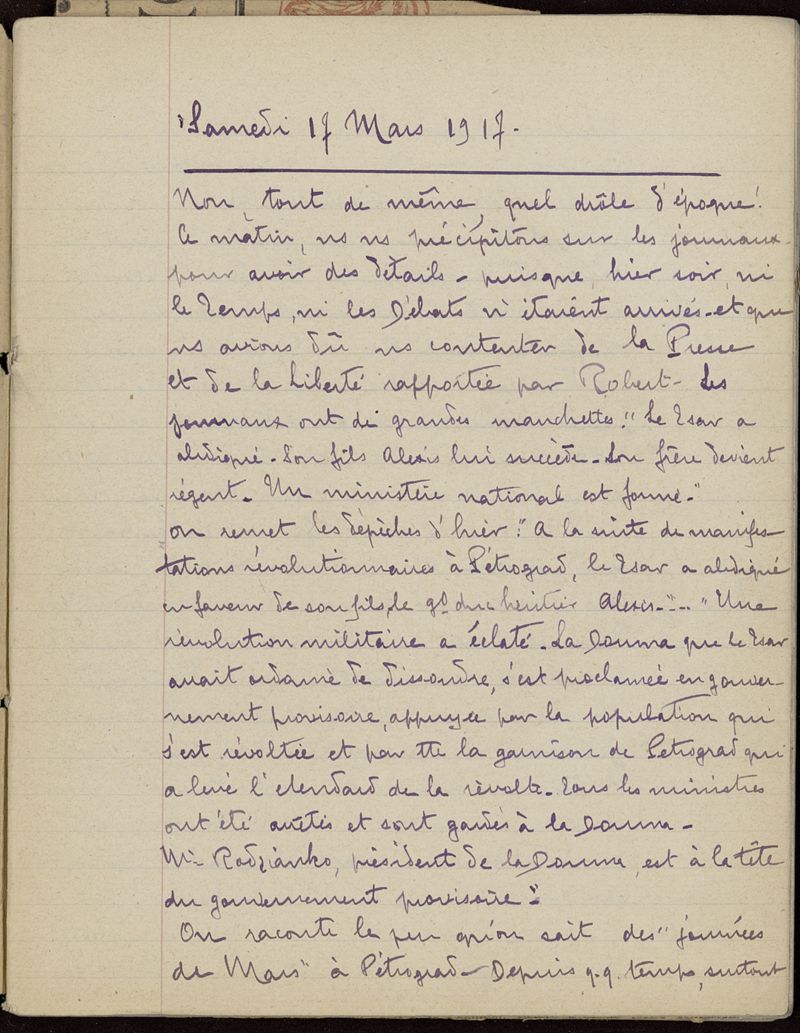 Samedi 17 Mars 1917.
Non, tout de même, quel drôle d'époque!
Ce matin, ns ns précipitons sur les journaux
pour avoir des détails - puisque, hier soir, ni
le Temps, ni les Débats n'étaient arrivés - et que
ns avions dû ns contenter de la Presse
et de la Liberté rapportée par Robert - Les
journaux ont de grandes manchettes: "Le Tsar a
abdiqué - Son fils Alexis lui succède - Son frère devient
régent - Un ministère national est formé."
On remet les dépêches d'hier: "A la suite de manifes-
tations révolutionnaires à Pétrograd, le Tsar a abdiqué
en faveur de son fils, le gd duc héritier Alexis -" - "Une
révolution militaire a éclaté - La Douma que le Tsar
avait ordonné de dissoudre, s'est proclamée en gouver-
nement provisoire, appuyée par la population qui
s'est révoltée et par tte la garnison de Petrograd qui
a levé l'étendard de la révolte - Tous les ministres
ont été arrêtés et sont gardés à la Douma -
Mr Rodzianko, président de la Douma, est à la tête
du gouvernement provisoire"
On raconte le peu qu'on sait des "journées
de Mars" à Pétrograd - Depuis q.q. temps, surtout